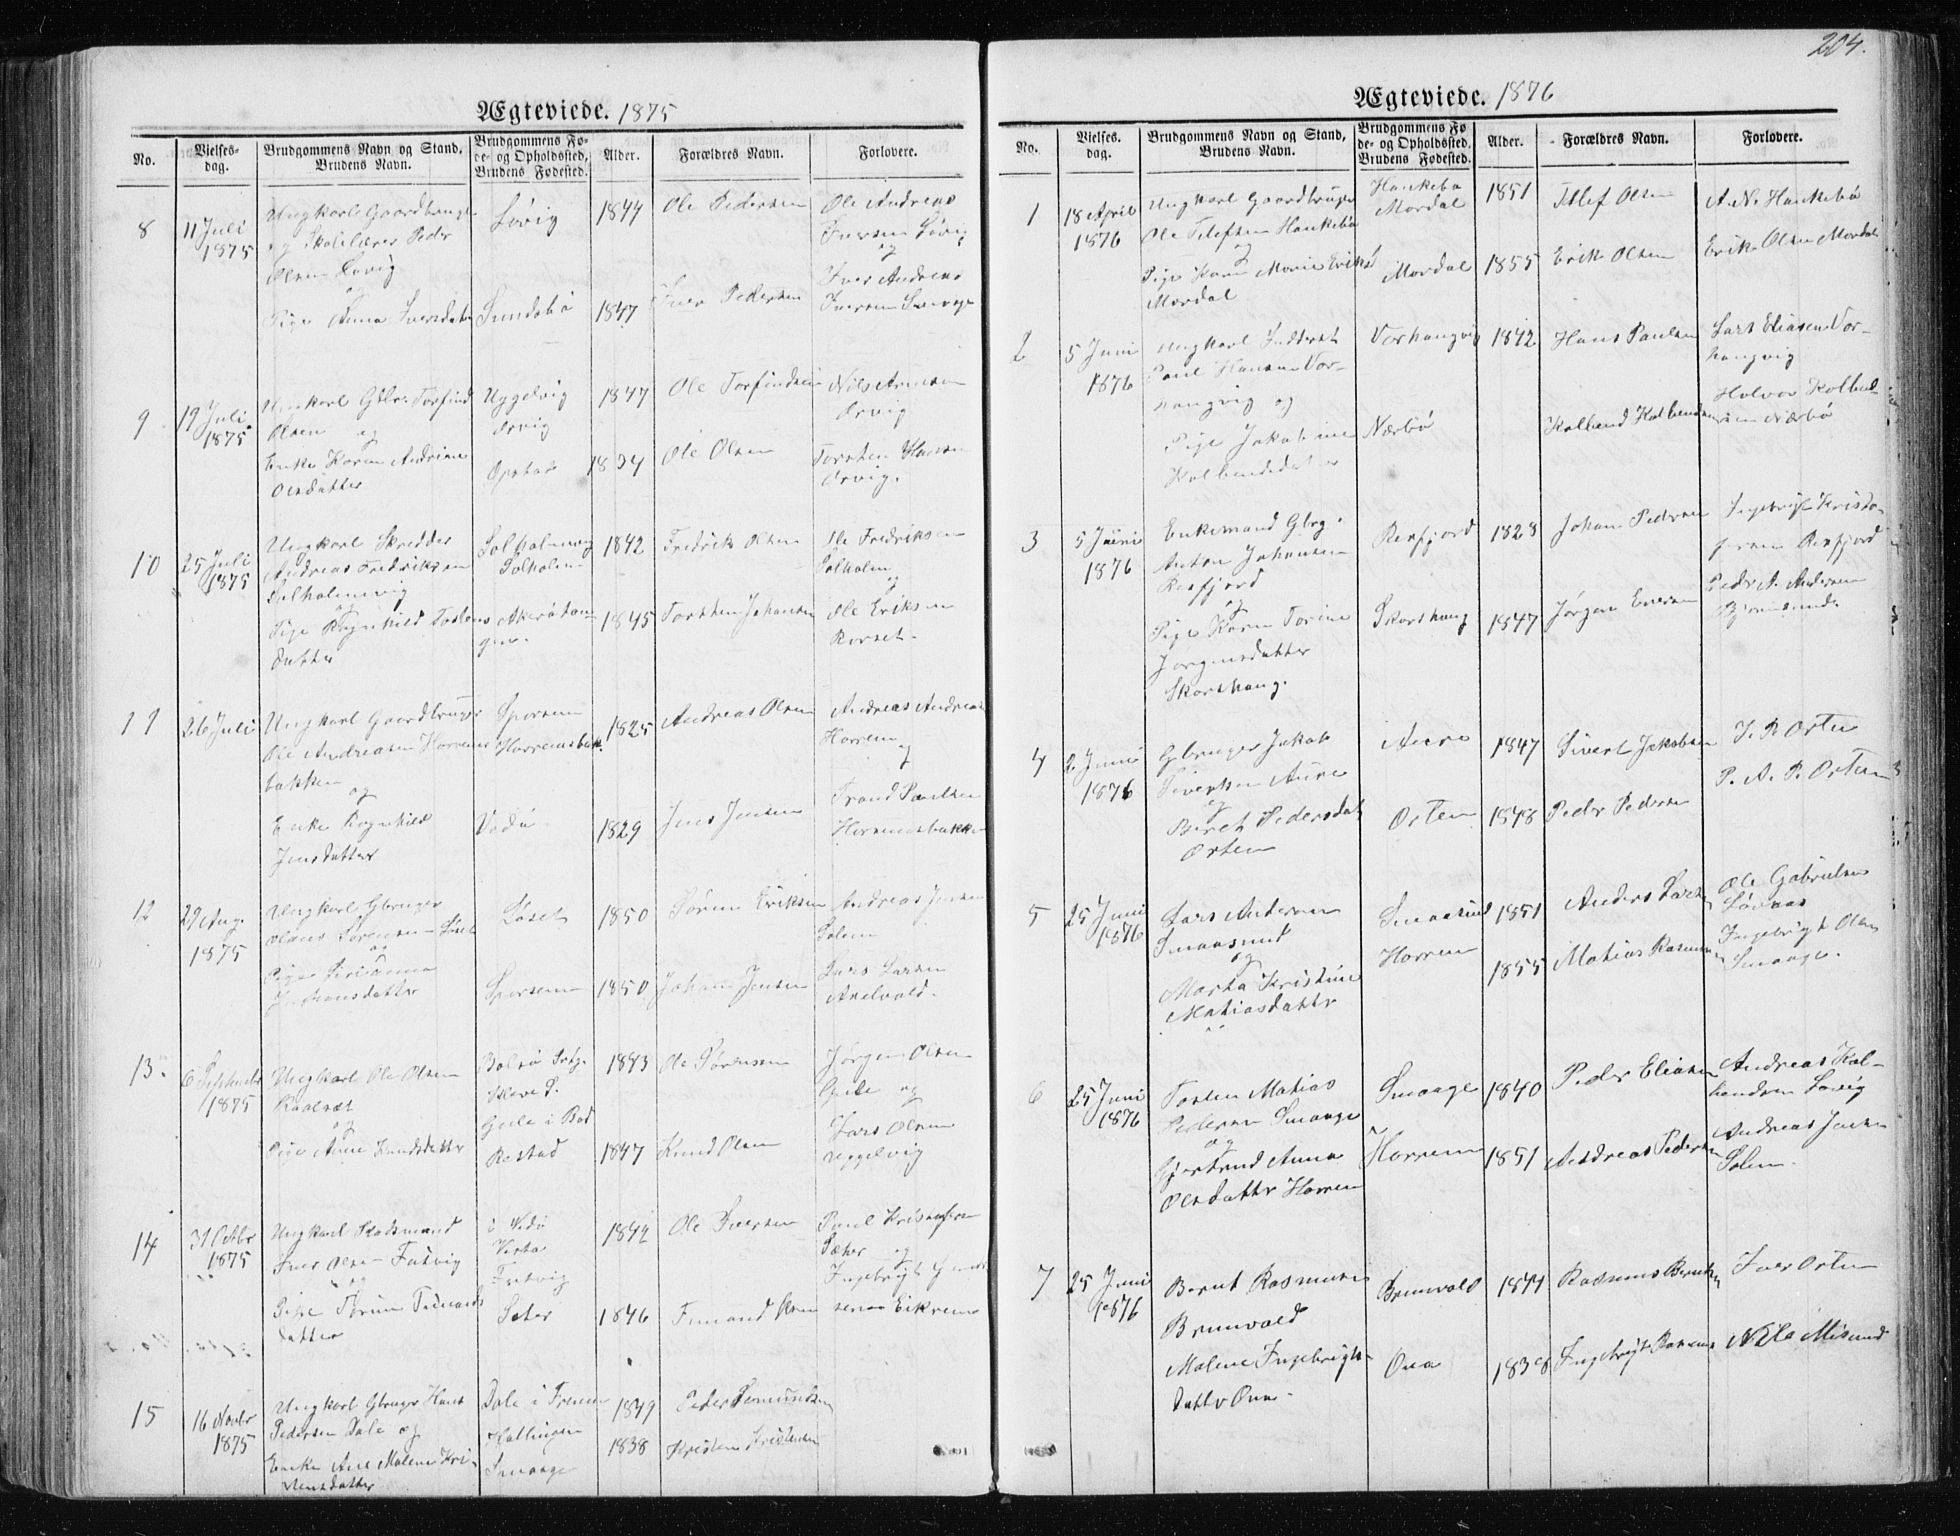 Ægteviede. 1875
No.
Vielses-
dag.
Brudgommens Navn og Stand,
Brudens Navn.
Brudgommens Fø-
de- og Opholdssted,
Brudens Fødested.
Alder.
Forældres Navn.
Forlovere.
8
11 Juli
1875
Ungkarl Gaardbruger
og Skolelærer Peder
Olsen Løvig
og
Pige Anna Iversdatter
Løvig
Sundsbø
1844
1847
Ole Pedersen
Iver Pedersen
Ole Andreas
Iversen Løvig
og
Iver Andreas
Iversen
9
19 Juli
1875
Ungkarl Gbr. Torfind
Olsen og
Enke Karen Andrine
Olsdatter
Uggelvig
Orvig
Opstad
1847
Ole Torfindsen
Ole Olsen
Nils Arnesen
Orvig
Torsten Hansen
Orvig.
10
25 Juli
1875
Ungkarl Skredder
Andreas Fredriksen
Solholmvig
og
Pige Ragnhild Tostens
datter
Solholmvig
Solholm
1842
1845
Fredrik Olsen
Torsten Johansen
Ole Fredriksen
Solholm
og
Ole Eriksen
Rorset.
11
26 Juli
Ungkarl Gaardbruger
Ole Andreasen Horrems
bakken
og
Enke Ragnhild
Jensdatter
Sporsem
Horremsbak.
Vedø
1825
1829
Andreas Olsen
Jens Jensen
Andreas Andreas
Horrem
og
Trond Paulsen
Horremsbakken
12
29 Aug.
1875
Ungkarl Gbruger
Olaus Sørensen Løset
og
Pige
Johansdatter
Løset
Sporsem
1850
1850
Søren Eriksen
Johan Jensen
Andreas Jensen
Solem
Lars Larsen
13.
6 September
1875
Ungkarl Ole Olsen
og
Pige Anne Knudsdatter
Bolsø Sotg.
Kleve P.
Gule i Bod
Restad
1843
1847
Ole Sørensen
Knud Olsen
Jørgen Olsen
Gule og
Lars Olsen
Uggelvig
14
31 Octbr
1875
Ungkarl Pladsmand
Iver Olsen
og
Pige
datter
i Vedø
Sæter
1842
1846
Ole Iversen
Paul Kristofersen
Sæter og
Ingebrigt
Eikrem
15
16 Novbr
1875
Ungkarl Gbruger Hans
Pedersen Dale og
Enke Ane Malene Kri-
stensdatter
Dale i Frenen
Smaage
1849
1838
Peder
Kristen Kristensen
204.
Ægteviede. 1876
No.
Vielses-
dag.
Brudgommens Navn og Stand,
Brudens Navn.
Brudgommens Fø
de- og Opholdssted,
Brudens Fødested.
Alder.
Forældres Navn.
Forlovere.
1
18 April
1876
Ungkarl Gaardbruger
Ole Tellefsen Haukebø
og
Pige Karen Marie Eriks
Mordal
Haukebø
Mordal
Mordal
1851
1855
Tellef Olsen
Erik Olsen
A. N. Haukebø
Erik Olsen Mordal
2
5 Juni
1876
Ungkarl Inderst
Paul Hansen Vor-
hangvig og
Pige Jakobine
Kolbensdatter
Vorhangvig
Nærbø
1842
Hans Paulsen
Kolbend Kolbendsen
Lars Eliasen Vor-
hangvig
Halvor Kolbend-
sen Nærbø
3
5 Juni
1876
Enkemand Gbrg.
Anton Johansen
Rexfjord
og
Pige Karen Torine
Jørgensdatter
Skorshaug.
Rexfjord
Skorshaug
1828
1847
Johan Pedersen
Jørgen Eversen
Ingebrigt Kristo-
fersen Rexfjord
Peder A. Andersen
Bjørnsund
4
2 Juni
1876
Gbruger Jakob
Sivertsen Aure
og
Beret Pedersdat
Orten
Aure
Orten
1847
1848
Sivert Jakobsen
Peder Pedersen
J. P. Orten
P. A. P. Orten
5
25 Juni
1876
Lars Andersen
Smaasund
og
Marta Kristine
Matiasdatter
Smaasund
Horrem
1851
1855
Anders Larsen
Matias Rasmussen
Ole Gabrielsen
Ingebrigt Olsen
Smaage.
6
25 Juni
1876
Tosten Matias
Pedersen Smaage
og
Gjertrud Anna
Olsdatter Horrem
Smaage
Horrem
1840
1851
Peder Eliasen
Andreas Pedersen
Andreas Kol-
bendsen Løvig
Andreas Jensen
Solem.
7
25 Juni
1876
Bernt Rasmusen
Brunvold
Malene Ingebrigts-
datter Ona
Brunvold
Ona
1844
1838
Rasmus Berntsen
Ingebrigt Rasmus
Iver Orten
Nils Misund